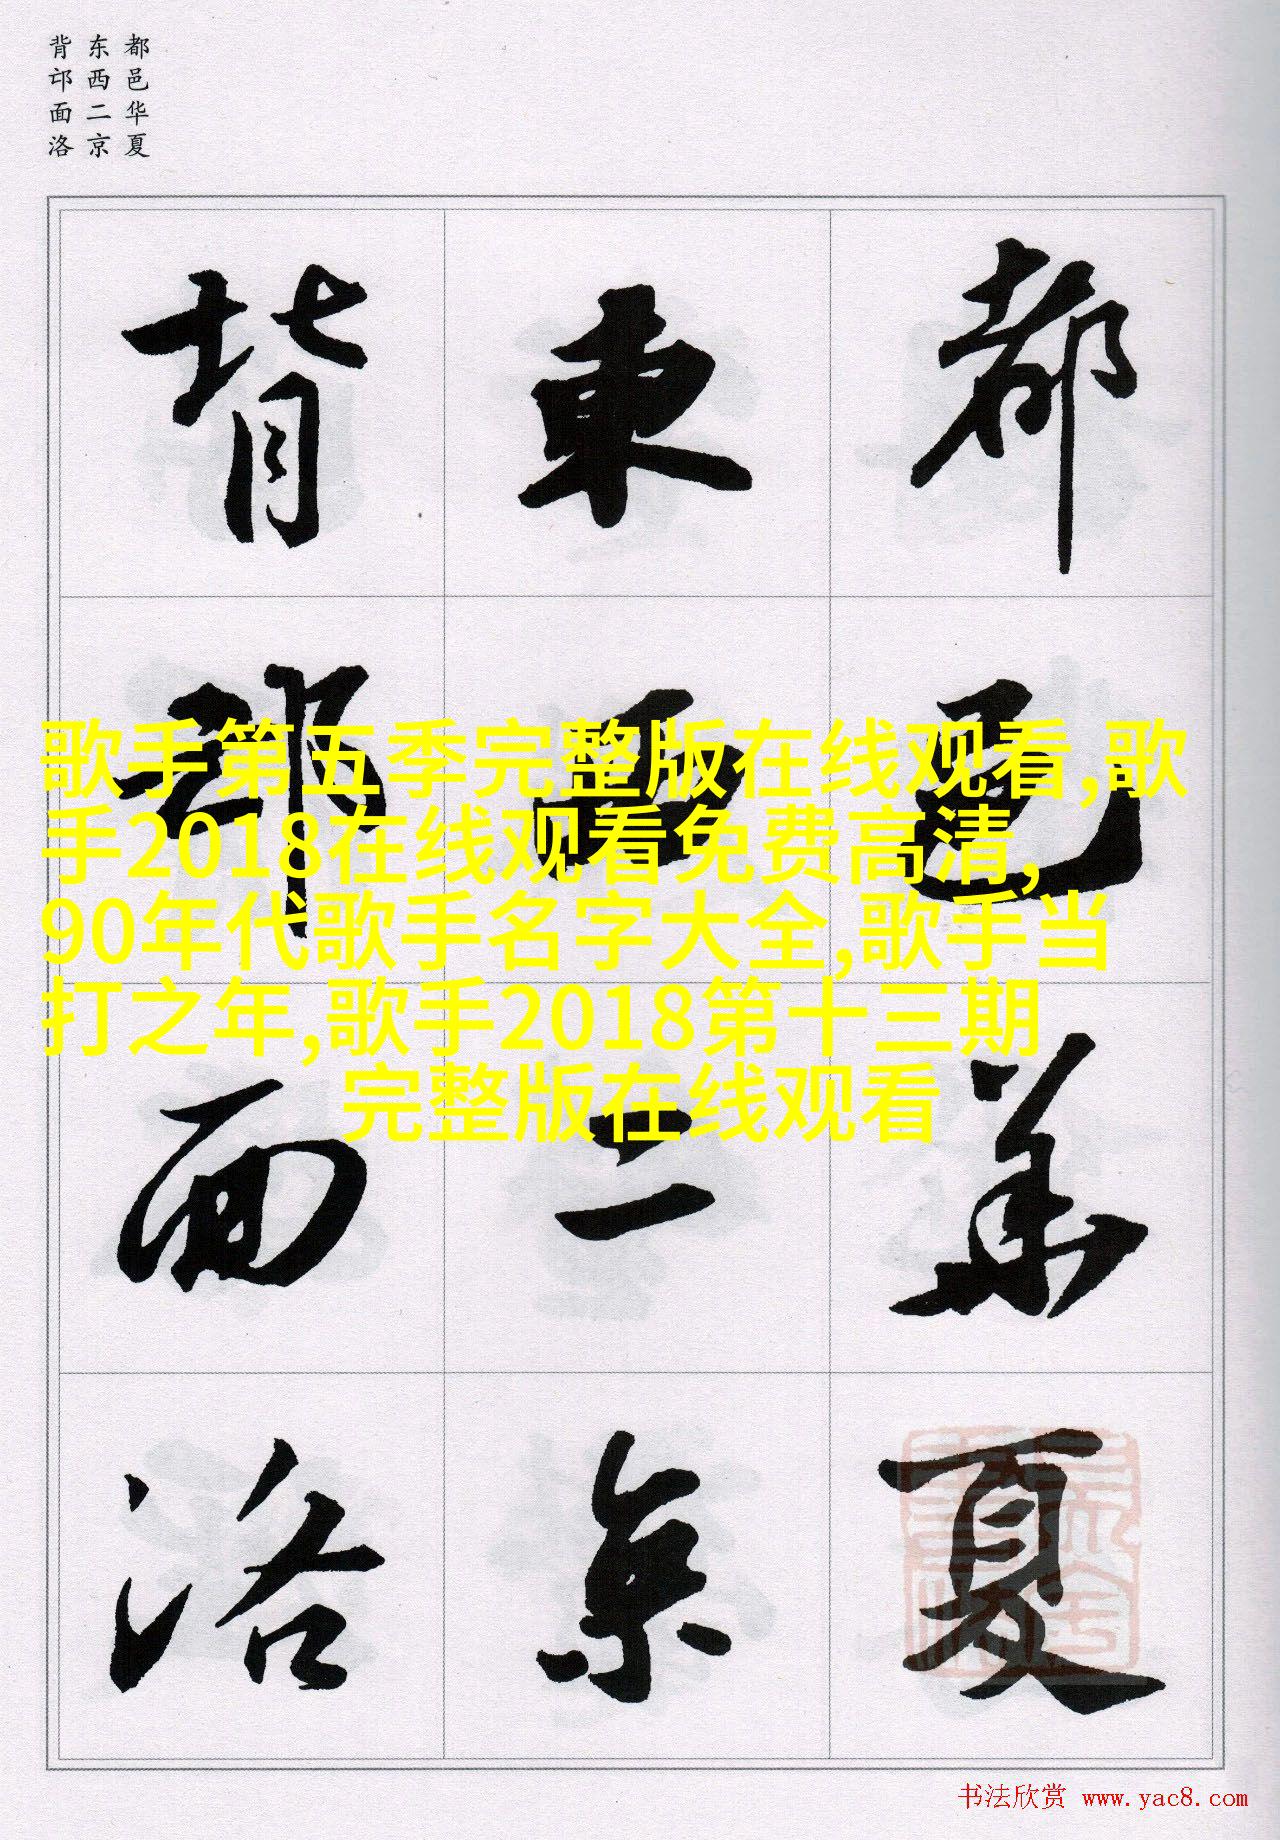 都邑华夏
东西二京
背邙面洛
都邑華夏
東西二京
背邙面洛
歌手第五季完整版在线观看,歌
手2018在线观看免费高清,
90年代歌手名字大全,歌手当
打之年,歌手2018第十三期
完整版在线观看
书法欣赏 www.yac8.com